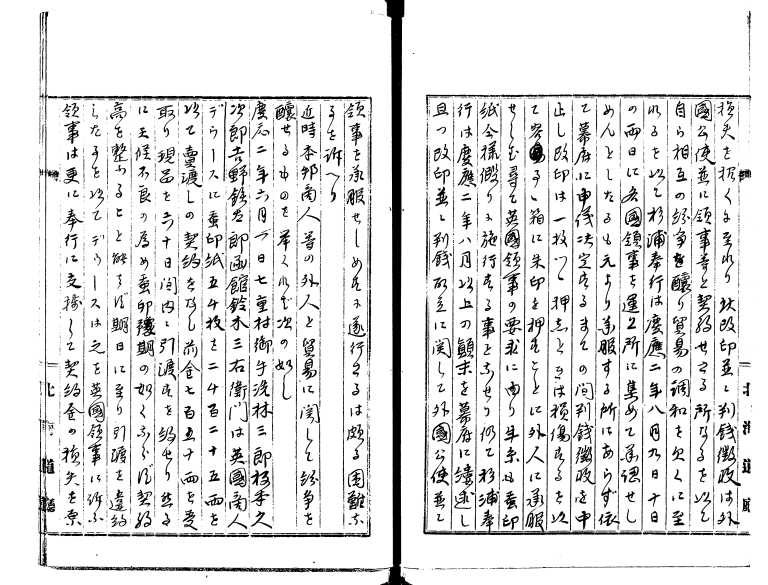 損失を招くに至れり故改印並に判銭徴収は外
國公使並に領事等と契約せさる所なるを以て
自ら相互の紛争を醸り貿易の調和を欠くに至
れるを以て杉浦奉行は慶應二年八月九日十日
の両日に各國領事を運上所に集めて承認せし
めんとしたるも元より承服する所にあらす依
て幕府に申稟決定するまての間判銭徴収を中
止し改印は一枚つゝ押すときは損傷するを以
て箱に朱印を押すことに外人に承服
せしむ尋て英國領事の要求に由り年系も蚕印
紙今様假りに施行する事とせり仍て杉浦奉
行は慶應二年八月以上の顛末を幕府に縷述し
且つ改印並に判銭取立に関して外國公使並に
領事を承服せしめされは遂行するは頗る困難な
るを訴へり
近時本邦商人等の外人と貿易に関して紛争を
醸せるものを挙くれは次の如し
慶應二年六月一日七重村御手洗林三郎杉孝之
次郎吉野鉄太郎函館鈴木三右衛門は英國商人
デウースに蚕印紙五千枚を二千百二十五両を
以て賣渡しの契約をなし前金七百五十両を受
取り現品を六十日間内に引渡すを約せり然る
に天候不良の為め蚕印豫期の如くならす契約
高を整ふること能はす期日に至り引渡を違約
したるを以てデウースは之を英國領事に訴ふ
領事は更に奉行に交渉して契約金の損失を索
北海道廳
北海道廳